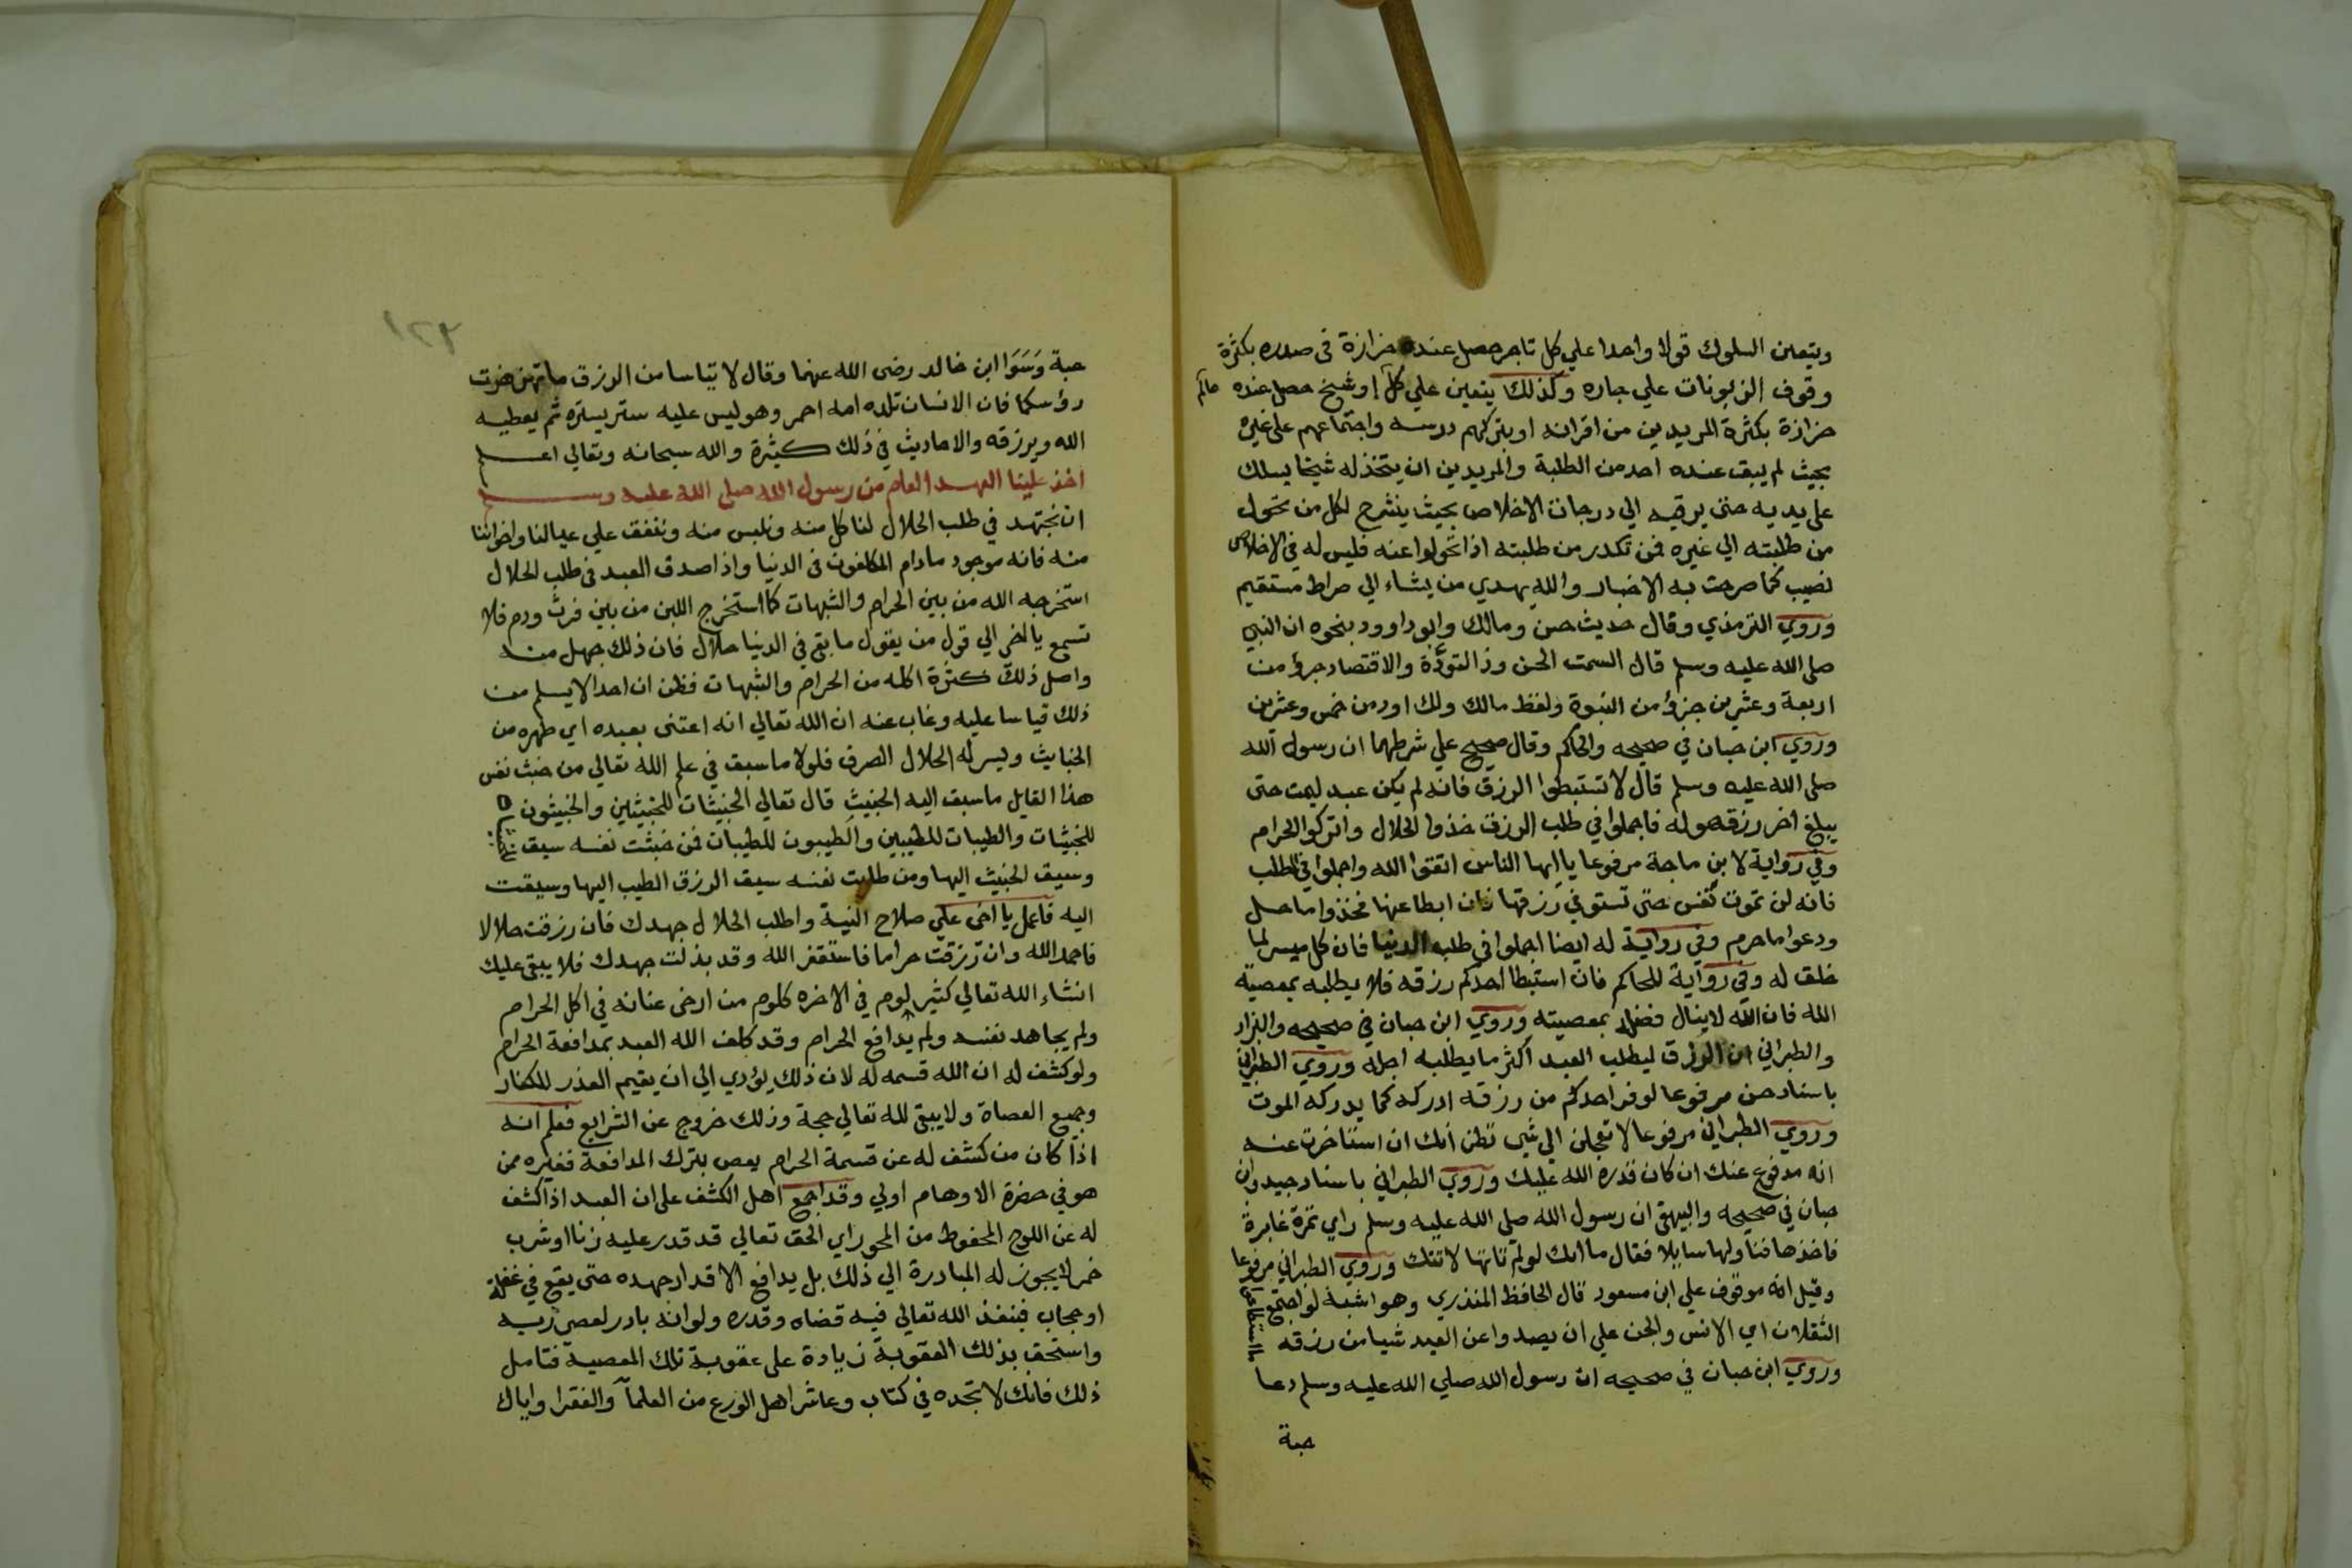 ويتعين السلوك قولا واحدا علي كل تاجر حصل عنده حزازة في صدره بكثرة
وقوف الزبونات علي جاره وكذلك يتعين علي كل او شيخ حصل عنده
عالم
حزازة بكثرة المريدين من اقرانه او بتركهم درسه واجتماعهم علي غيره
بحيث لم يبق عنده احد من الطلبة والمريدين ان يتخذ له شيخا يسلك
علي يديه حتي يرقيه الي درجات الاخلاص بحيث ينشرح لكل من تحول
من طلبته الي غيره فمن تكدر من طلبته اذا تحولوا عنه فليس له في الاخلاص
نصيب كما صرحت به الاخبار والله يهدي من يشاء الي صراط مستقيم
وروي الترمذي وقال حديث حسن ومالك وابو داوود بنحوه ان النبي
صلي الله عليه وسلم قال السمت الحسن وذ التودة والاقتصاد جزؤ من
اربعة وعشرين جزؤ من النبوة ولفظ مالك ولك اود من خمس وعشرين
وروي ابن حبان في صحيحه والحاكم وقال صحيح علي شرطهما ان رسول الله
صلي الله عليه وسلم قال لا تستبطوا الرزق فانه لم يكن عبد ليمت حتي
يبلغ اخر رزقه هو له فاجملوا في طلب الرزق خذوا الحلال واتركوا الحرام
وفي رواية لابن ماجة مرفوعا يا ايها الناس اتقوا الله واجملوا في الطلب
فانه لن تموت نفس حتي تستوفي رزقها فان ابطا عنها فخذوا ما حل
ودعوا ما حرم وفي رواية له ايضا اجملوا في طلب الدنيا فان كل ميسر لما
خلق له وفي رواية للحاكم فان استبطا احدكم رزقه فلا يطلبه بمعصية
الله فان الله لا ينال فضله بمعصيته وروي ابن حبان في صحيحه والبزار
والطبراني ان الرزق ليطلب العبد اكثر ما يطلبه اجله وروي الطبراني
باسناد حسن مرفوعا لو فر احدكم من رزقه ادركه كما يدركه الموت
وروي الطبراني مرفوعا لا تعجلن الي شي تظن انك ان استاخرت عنه
انه مدفوع عنك ان كان قدره الله عليك وروي الطبراني باسناد جيد وابن
حبان في صحيحه والبيهقي ان رسول الله صلي الله عليه وسلم راي تمرة غابرة
فاخذها فناولها سايلا فقال ما انك لو لم تاتها لاتتك وروي الطبراني مرفوعا
وقيل انه موقوف علي ابن مسعود قال الحافظ المنذري وهو اشبه لو اجتمع
الثقلان اي الانس والجن علي ان يصدوا عن العبد شيا من رزقه
ما استطاعوا
وروي ابن حبان في صحيحه ان رسول الله صلي الله عليه وسلم دعا
حبة
١٢٩
حبة وَسَوَا ابن خالد رضي الله عنهما وقال لا تياسا من الرزق ما تهزهزت
رؤسكما فان الانسان تلده امه احمر وهو ليس عليه ستر يستره ثم يعطيه
الله ويرزقه والاحاديث في ذلك كثيرة والله سبحانه وتعالي اعلم
اخذ علينا العهد العام من رسول الله صلي الله عليه وسلم
ان نجتهد في طلب الحلال لناكل منه ونلبس منه وننفق علي عيالنا واخواننا
منه فانه موجود مادام المكلفون في الدنيا واذا صدق العبد في طلب الحلال
استخرجه الله من بين الحرام والشبهات كما استخرج اللبن من بين فرث ودم فلا
تسمع يا اخي الي قول من يقول ما بقي في الدنيا حلال فان ذلك جهل منه
واصل ذلك كثرة اكله من الحرام والشبهات فظن ان احدا لا يسلم من
ذلك قياسا عليه وغاب عنه ان الله تعالي انه اعتني بعبده اي طهره من
الخبايث ويسر له الحلال الصرف فلولا ما سبق في علم الله تعالي من خبث نفس
هذا القايل ما سيق اليه الخبيث قال تعالي الخبيثات للخبيثين والخبيثون
للخبيثات والطيبات للطيبين والطيبون للطيبات فمن خبثت نفسه سيق
وسيق الخبيث اليها ومن طابت نفسه سيق الرزق الطيب اليها وسيقت
اليه فاعمل يا اخي علي صلاح النية واطلب الحلال جهدك فان رزقت حلالا
فاحمد الله وان رزقت حراما فاستغفر الله وقد بذلت جهدك فلا يبقي عليك
انشاء الله تعالي كثير لوم في الاخره كلوم من ارخي عنانه في اكل الحرام
ولم يجاهد نفسه ولم يدافع الحرام وقد كلف الله العبد بمدافعة الحرام
ولو كشف له ان الله قسمه له لان ذلك يؤدي الي ان يقيم العذر للكفار
وجميع العصاة ولا يبقي لله تعالي حجة وذلك خروج عن الشرايع فعلم انه
اذا كان من كشف له عن قسمة الحرام يعص بترك المدافعة فغيره ممن
هو في حضرة الاوهام اولي وقد اجمع اهل الكشف علي ان العبد اذا كشف
له عن اللوح المحفوظ من المحو راي الحق تعالي قد قدر عليه زنا او شرب
خمر لا يجوز له المبادرة الي ذلك بل يدافع الاقدار جهده حتي يقع في غفلة
او حجاب فينفذ الله تعالي فيه قضاه وقدره ولو انه بادر لعصي ربه
واستحق بذلك العقوبة زيادة علي عقوبة تلك المعصية فتامل
ذلك فانك لا تجده في كتاب وعاشر اهل الورع من العلماء والفقرا واياك